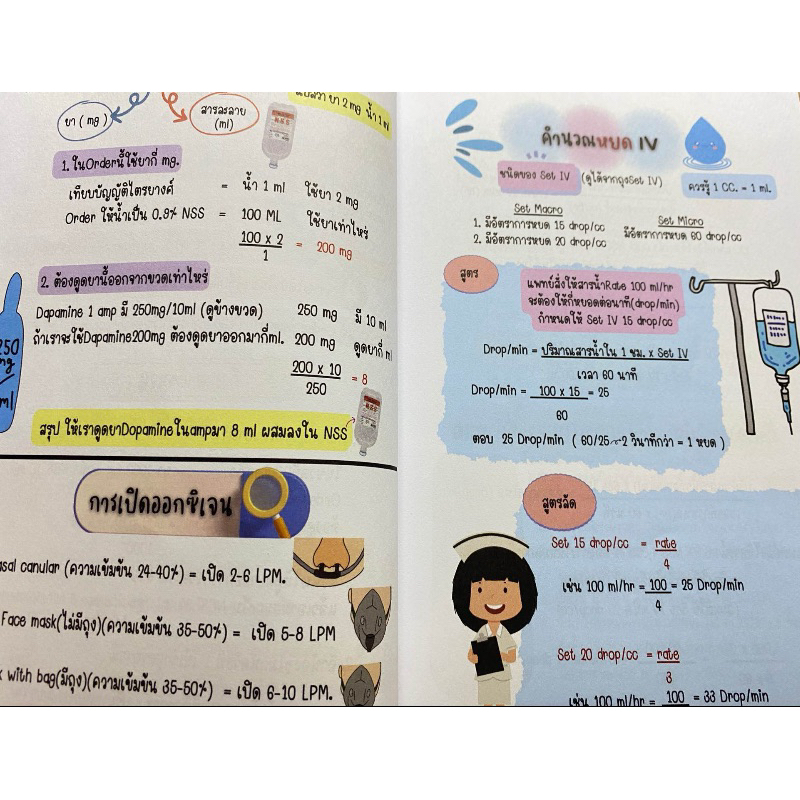 แปลว่า ยา 2 mg น้ำ 1 ml
ยา ( mg )
สารละลาย
(ml)
1. ในOrderนี้ใช้ยากี่ mg.
เทียบบัญญัติไตรยางศ์ = น้ำ 1 ml ใช้ยา 2 mg
Order ให้น้ำเป็น 0.9% NSS = 100 ML ใช้ยาเท่าไหร่
100 x 2 = 200 mg
1
2. ต้องดูดยานี้ออกจากขวดเท่าไหร่
250
mg
ml
Dapamine 1 amp มี 250mg/10ml (ดูข้างขวด) 250 mg มี 10 ml
ถ้าเราจะใช้Dapamine200mg ต้องดูดยาออกมากี่ml. 200 mg ดูดยากี่ ml
200 x 10 = 8
250
สรุป ให้เราดูดยาDopamineในampมา 8 ml ผสมลงใน NSS
การเปิดออกซิเจน
asal canular (ความเข้มข้น 24-40%) = เปิด 2-6 LPM.
Face mask(ไม่มีถุง)(ความเข้มข้น 35-50%) = เปิด 5-8 LPM
k with bag(มีถุง)(ความเข้มข้น 35-50%) = เปิด 6-10 LPM.
คำนวณหยด IV
ชนิดของ Set IV (ดูได้จากถุงSet IV)
ควรรู้ 1 CC. = 1 ml.
Set Macro
1. มีอัตราการหยด 15 drop/cc
2. มีอัตราการหยด 20 drop/cc
Set Micro
มีอัตราการหยด 60 drop/cc
สูตร
แพทย์สั่งให้สารน้ำRate 100 ml/hr
จะต้องให้กี่หยอดต่อนาที(drop/min)
กำหนดให้ Set IV 15 drop/cc
Drop/min = ปริมาณสารน้ำใน 1 ชม. x Set IV
เวลา 60 นาที
Drop/min = 100 x 15 = 25
60
ตอบ 25 Drop/min ( 60/25~2 วินาทีกว่า = 1 หยด )
สูตรลัด
Set 15 drop/cc = rate
4
เช่น 100 ml/hr = 100 = 25 Drop/min
4
Set 20 drop/cc = rate
3
เช่น 100 ml/hr = 100 = 33 Drop/min